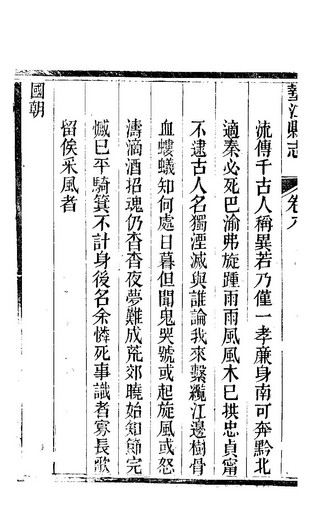 墊江縣志
卷九
流傳千古人稱異若乃僅一孝廉身南可奔黔北
適秦必死巴渝弗旋踵雨雨風風木巳拱忠貞甯
不逮古人名獨湮滅與誰論我來繫纜江邊樹骨
血螻蟻知何處日暮但聞鬼哭號或起旋風或怒
濤滴酒招魂仍杳杳夜夢難成荒郊曉始知節完
憾巳平騎箕不計身後名余憐死事識者寡長歌
留俟采風者
國朝